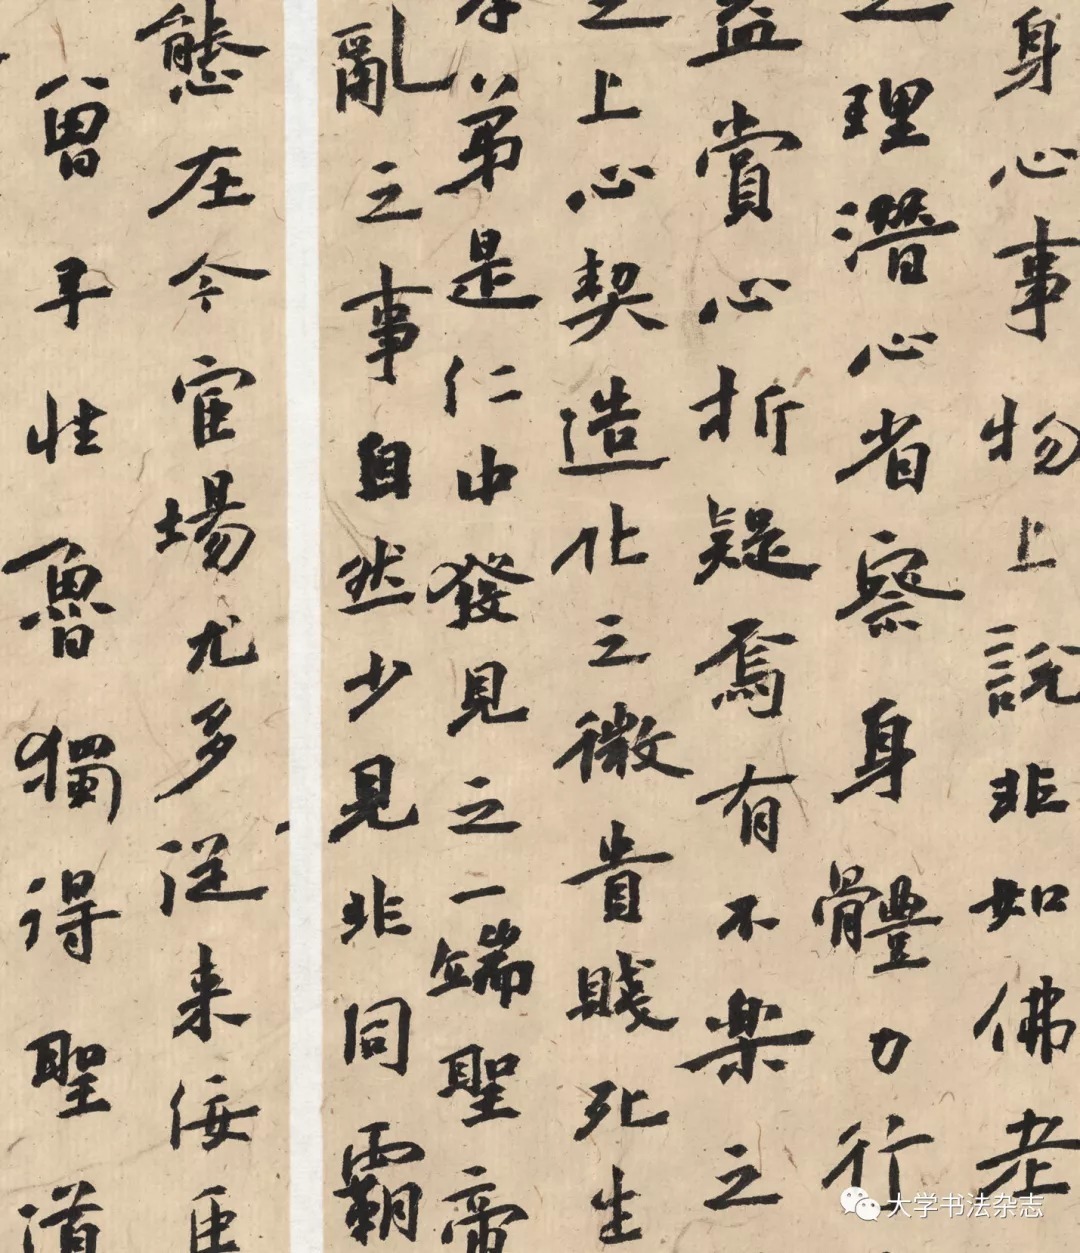 身心事物上說非如佛老
之理潛心省察身體力行
益賞心折疑焉有不楽之
之上心契造化之微貴賤死生
弟是仁中發見之一端聖帝
亂之事自然少見非同霸
態在今宦場尤多從来佞臣
曾子性魯獨得聖道
大学书法杂志